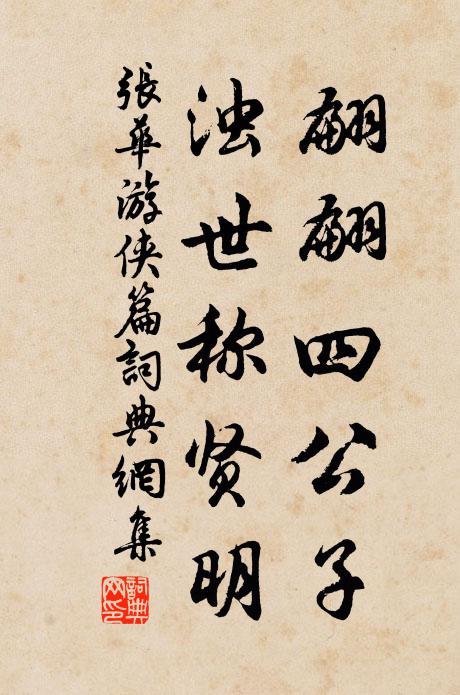 翩翩四公子
浊世称贤明
張華游侠篇詞典網集
詞典网印